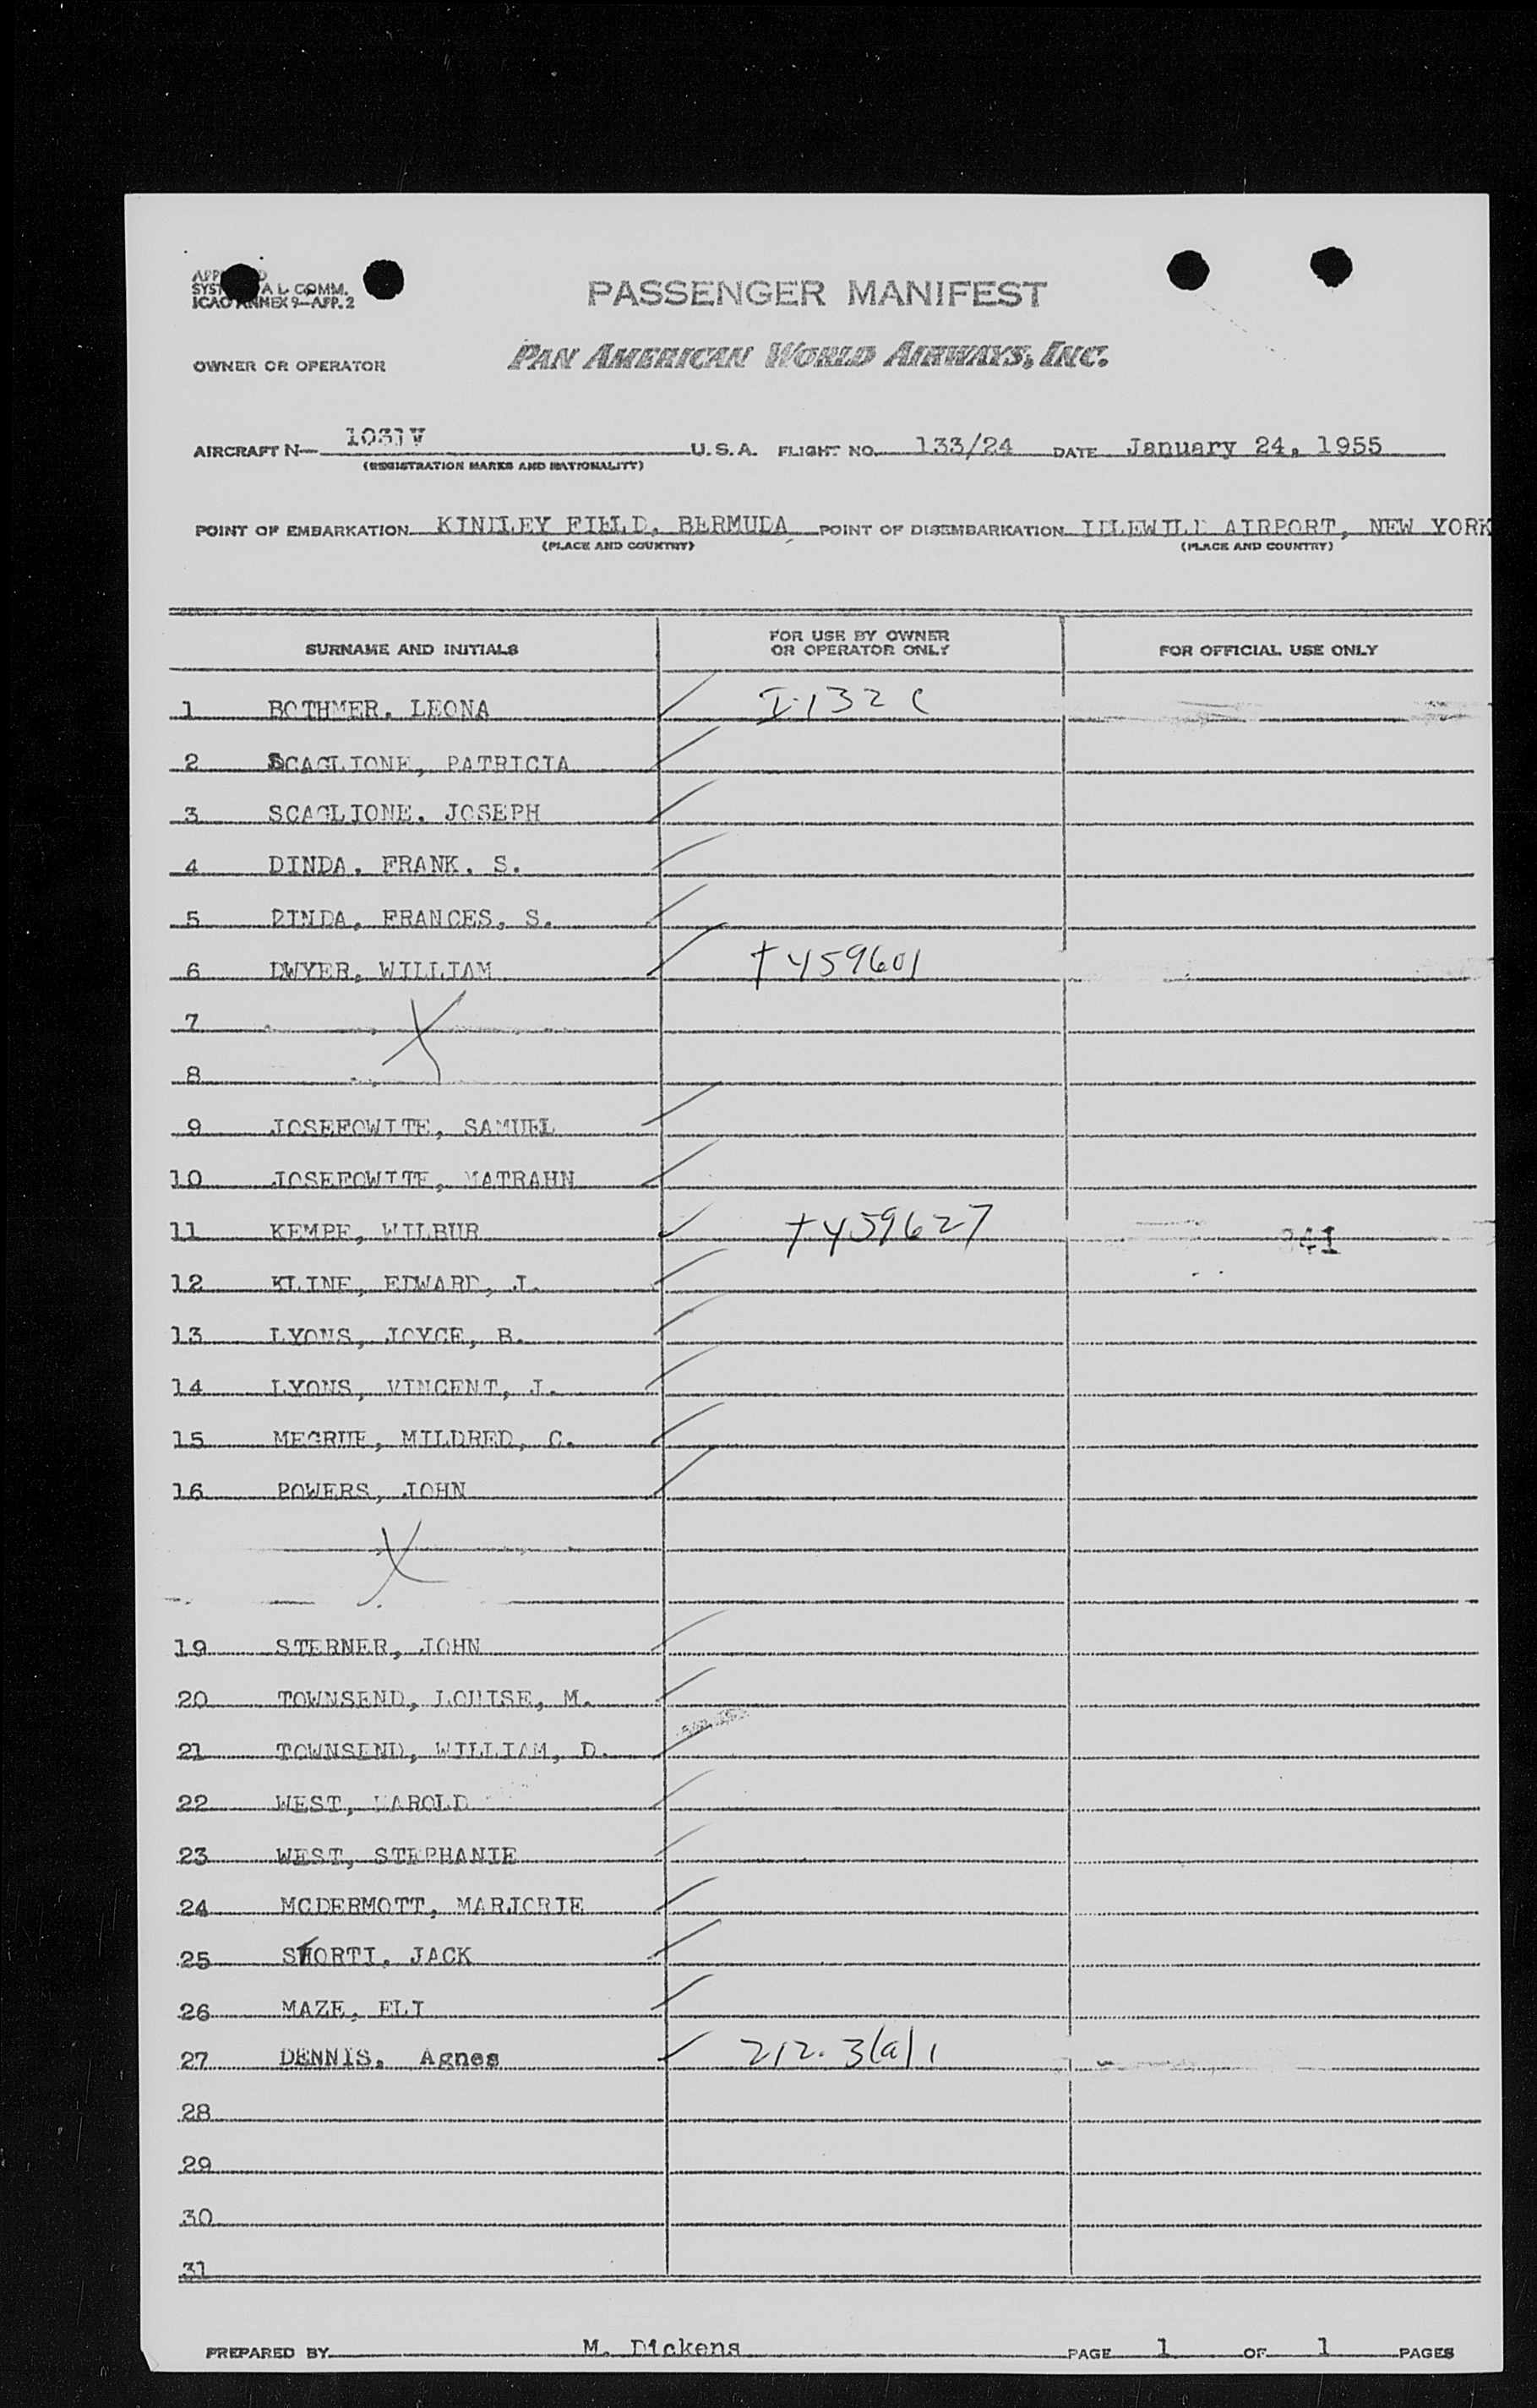 SYST A L COMM.
ICAO ANNEX 9—APP. 2
PASSENGER MANIFEST
OWNER OR OPERATOR PAN AMERICAN WORLD AIRWAYS, INC.
AIRCRAFT N— 1031V U. S. A. FLIGHT NO. 133/24 DATE January 24, 1955
(REGISTRATION MARKS AND NATIONALITY)
POINT OF EMBARKATION KINDLEY FIELD, BERMUDA POINT OF DISEMBARKATION IDLEWILD AIRPORT, NEW YORK
(PLACE AND COUNTRY) (PLACE AND COUNTRY)
SURNAME AND INITIALS FOR USE BY OWNER OR OPERATOR ONLY FOR OFFICIAL USE ONLY
1 BOTHMER, LEONA I-132 C
2 SCAGLIONE, PATRICIA
3 SCAGLIONE, JOSEPH
4 DINDA, FRANK, S.
5 DINDA, FRANCES, S.
6 DWYER, WILLIAM + Y59601
7
8
9 JOSEFOWITE, SAMUEL
10 JOSEFOWITE, MATRAHN
11 KEMPE, WILBUR + Y59627 341
12 KLINE, EDWARD, J.
13 LYONS, JOYCE, B.
14 LYONS, VINCENT, J.
15 MEGRUE, MILDRED, C.
16 POWERS, JOHN
19 STERNER, JOHN
20 TOWNSEND, LOUISE, M.
21 TOWNSEND, WILLIAM, D.
22 WEST, HAROLD
23 WEST, STEPHANIE
24 MCDERMOTT, MARJORIE
25 SHORTI, JACK
26 MAZE, ELI
27 DENNIS, Agnes 212.3(a)1
28
29
30
31
PREPARED BY M. Dickens PAGE 1 OF 1 PAGES